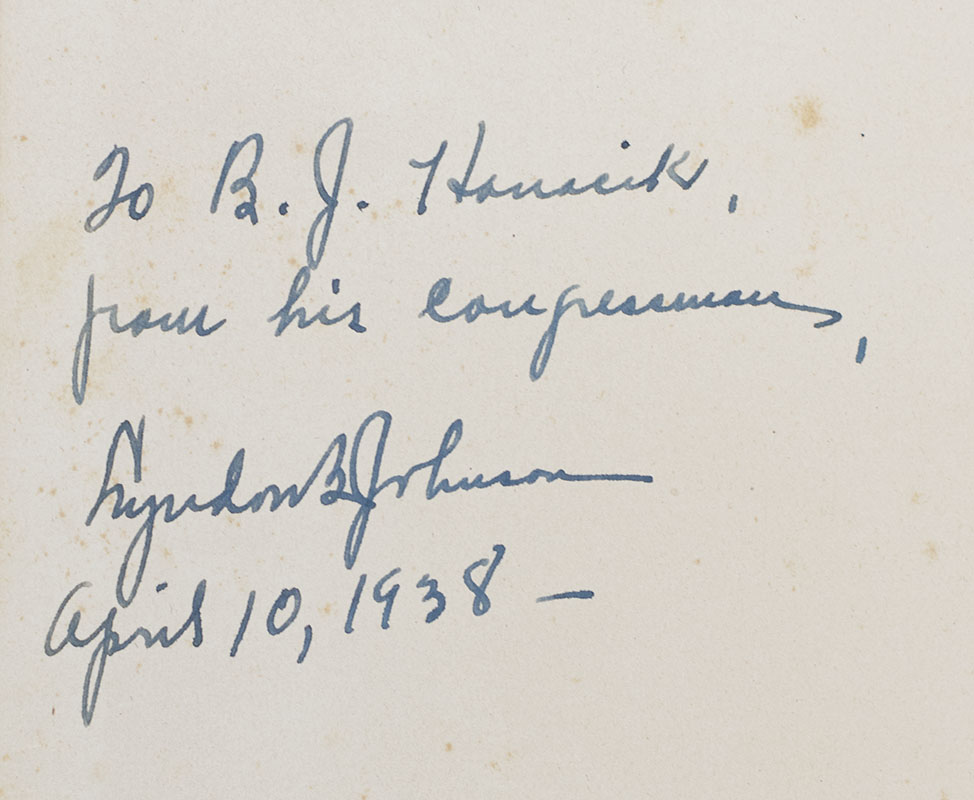 To B. J. Horacik,
from his congressman,
Lyndon B Johnson
April 10, 1938 —